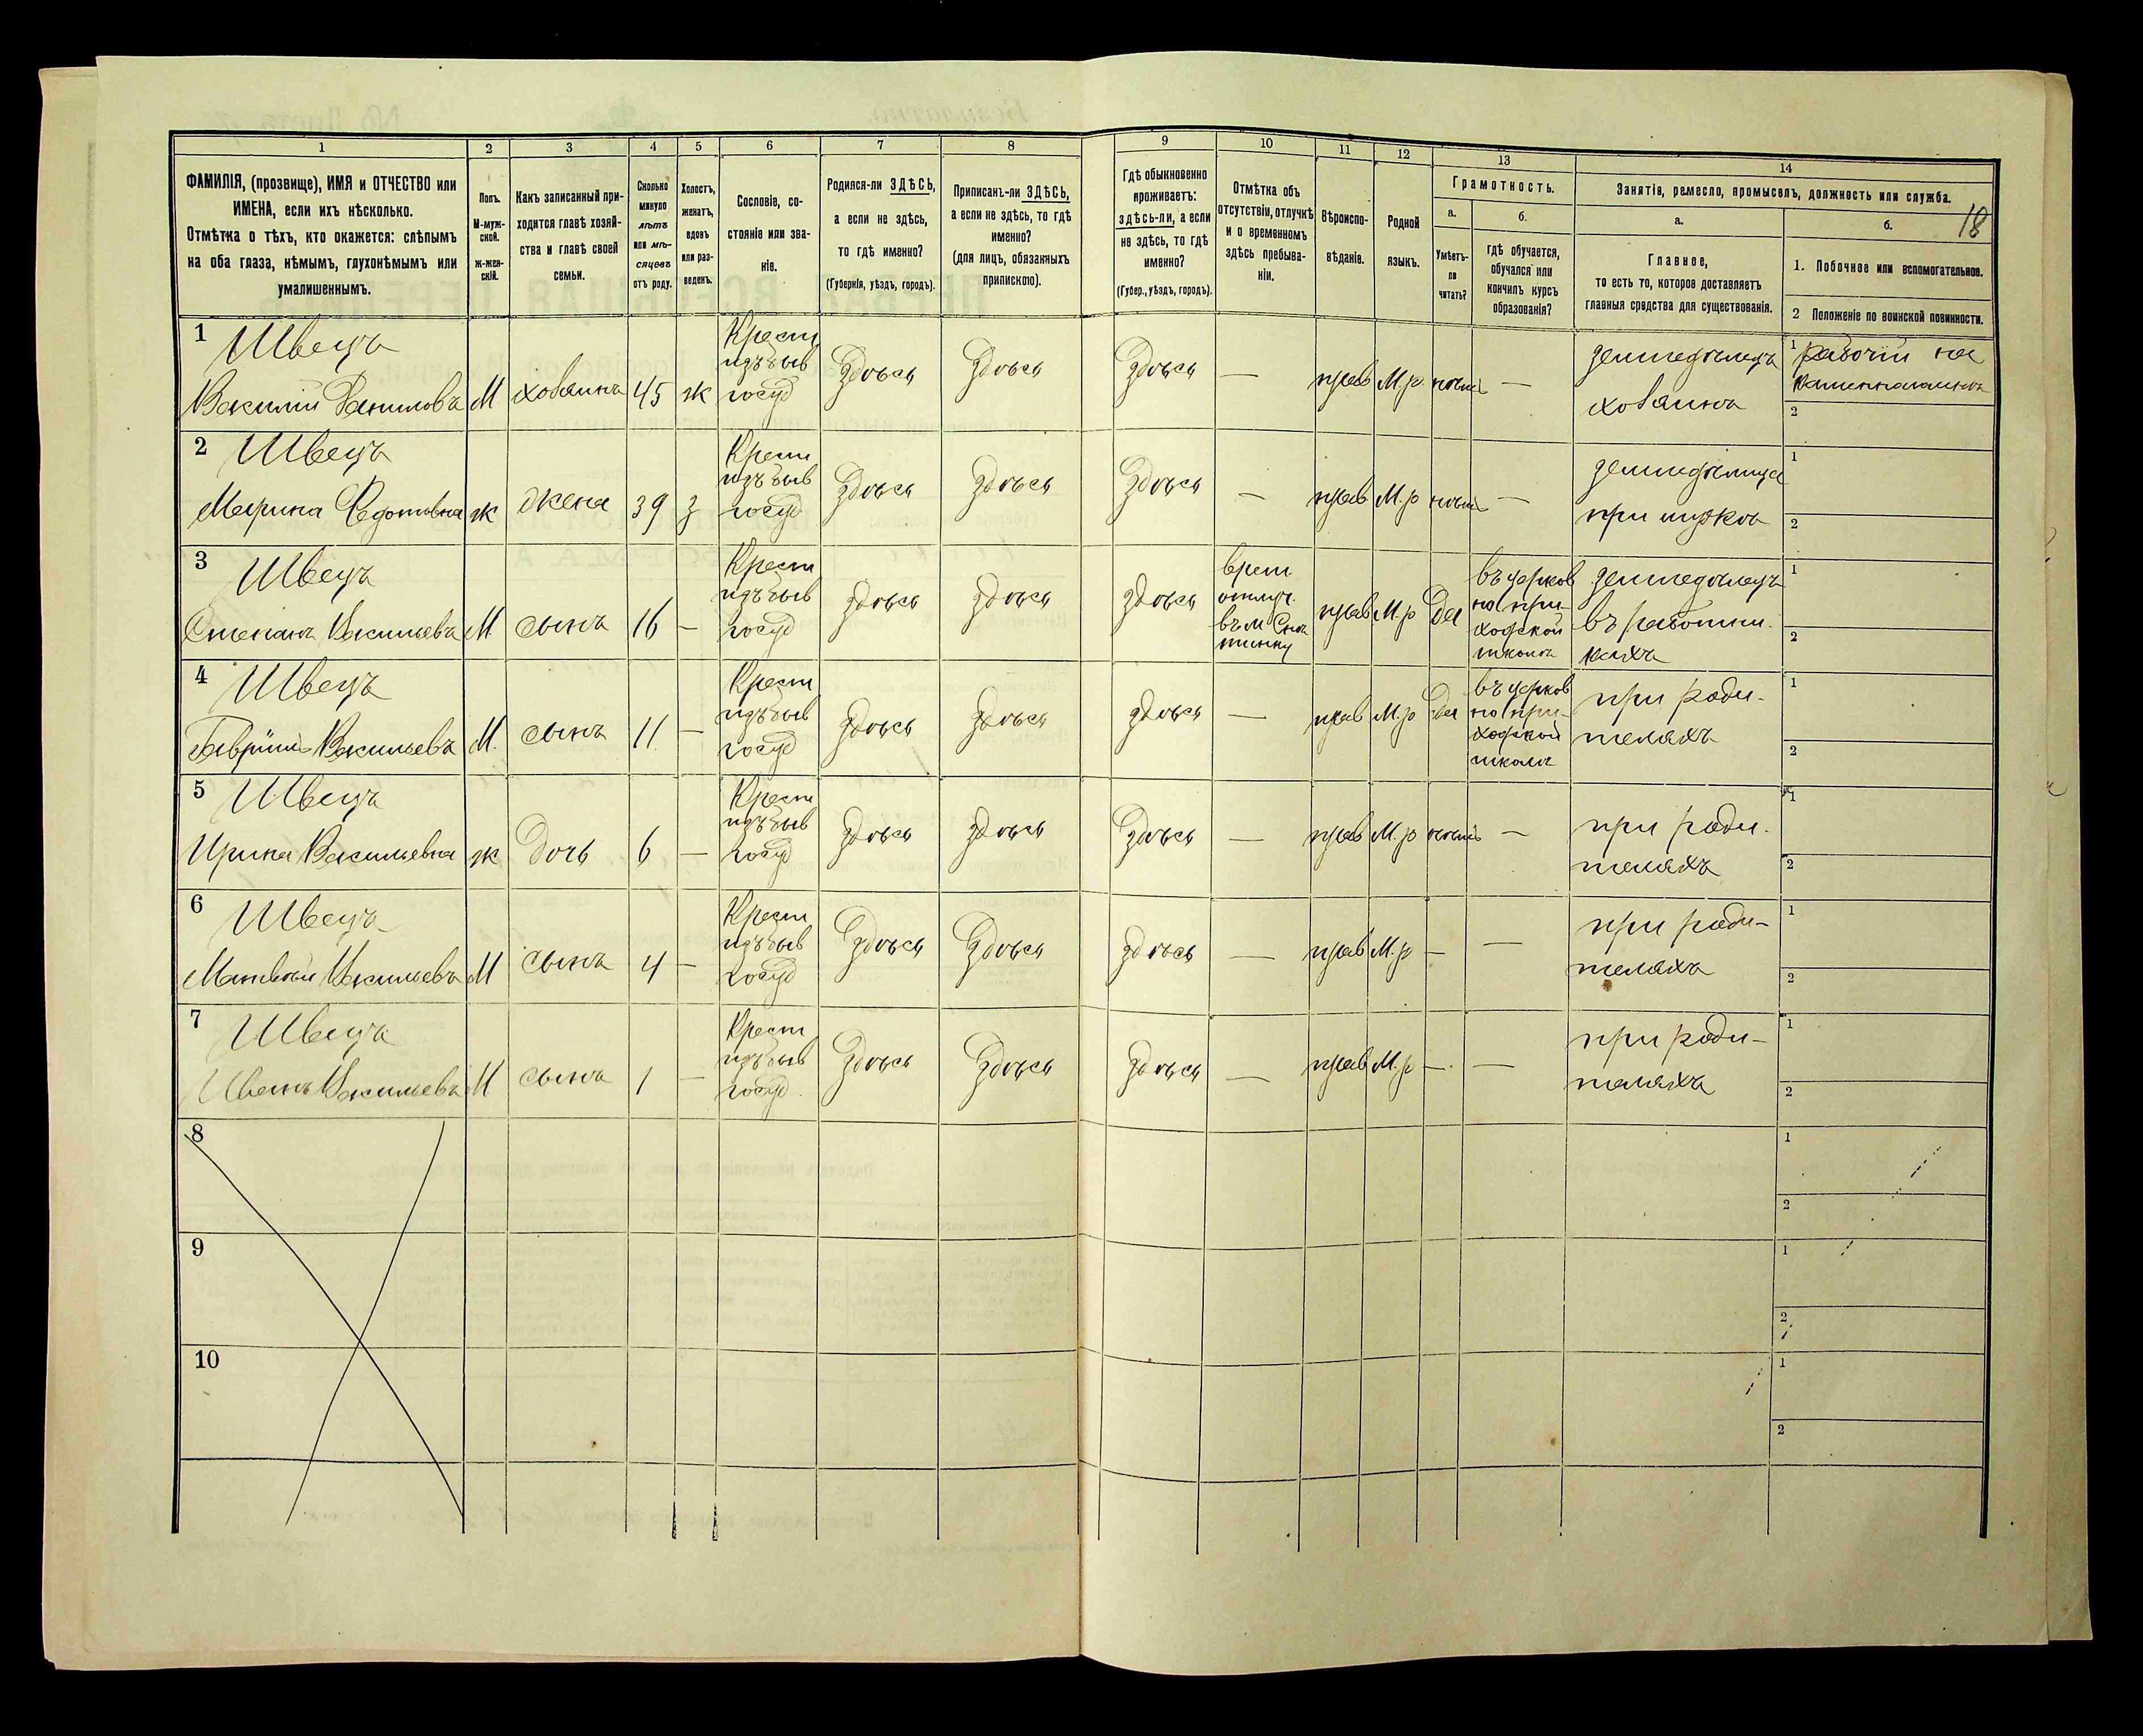 1 2 3 4 5 6 7 8 9 10 11 12 13 14
18
ФАМИЛІЯ, (прозвище), ИМЯ и ОТЧЕСТВО или
ИМЕНА, если ихъ нѣсколько.
Отмѣтка о тѣхъ, кто окажется: слѣпымъ
на оба глаза, нѣмымъ, глухонѣмымъ или
умалишеннымъ.
Полъ.
М-муж-
ской.
ж-жен-
скій.
Какъ записанный при-
ходится главѣ хозяй-
ства и главѣ своей
семьи.
Сколько
минуло
лѣтъ
или мѣ-
сяцевъ
отъ роду.
Холостъ,
женатъ,
вдовъ
или раз-
веденъ.
Сословіе, со-
стояніе или зва-
ніе.
Родился-ли ЗДѢСЬ,
а если не здѣсь,
то гдѣ именно?
(Губернія, уѣздъ, городъ).
Приписанъ-ли ЗДѢСЬ,
а если не здѣсь, то гдѣ
именно?
(для лицъ, обязанныхъ
припискою).
Гдѣ обыкновенно
проживаетъ:
здѣсь-ли, а если
не здѣсь, то гдѣ
именно?
(Губер., уѣздъ, городъ).
Отмѣтка объ
отсутствіи, отлучкѣ
и о временномъ
здѣсь пребыва-
ніи.
Вѣроиспо-
вѣданіе.
Родной
языкъ.
Грамотность.
а.
Умѣетъ-
ли
читать?
б.
Гдѣ обучается,
обучался или
кончилъ курсъ
образованія?
Занятія, ремесло, промыселъ, должность или служба.
а.
Главное,
то есть то, которое доставляетъ
главныя средства для существованія.
б.
1. Побочное или вспомогательное.
2 Положеніе по воинской повинности.
1
Швецъ
Василій Даниловъ
М
хозяинъ
45
ж
Крест
изъ быв
госуд
здѣсь
здѣсь
здѣсь
—
прав
М.р.
нѣтъ
—
земледѣлецъ
хозяинъ
1 рабочій на
2
2
Швецъ
Марина Федотовна
ж
жена
39
з
Крест
изъ быв
госуд
здѣсь
здѣсь
здѣсь
—
прав
М.р
нѣтъ
—
при мужѣ
1
2
3
Швецъ
Степанъ Васильевъ
М.
сынъ
16
—
Крест
изъ быв
госуд
здѣсь
здѣсь
здѣсь
врем
отлуч.
въ м. Сня
тынку
прав
М.р
Да
въ церков
но при-
ходской
школѣ
земледѣлецъ
въ работни.
кахъ
1
2
4
Швецъ
Гавріилъ Васильевъ
М.
сынъ
11
—
Крест
изъ быв
госуд
здѣсь
здѣсь
здѣсь
—
прав
М.р
Да
въ церков
но при-
ходской
школѣ
при роди-
теляхъ
1
2
5
Швецъ
Ирина Васильевна
ж
Дочь
6
—
Крест
изъ быв
госуд
здѣсь
здѣсь
здѣсь
—
прав
М.р
нѣтъ
—
при роди-
теляхъ
1
2
6
Швецъ
Матвѣй Васильевъ
М
сынъ
4
—
Крест
изъ быв
госуд
здѣсь
здѣсь
здѣсь
—
прав
М.р
—
—
при роди-
теляхъ
1
2
7
Швецъ
Иванъ Васильевъ
М
сынъ
1
—
Крест
изъ быв
госуд.
здѣсь
здѣсь
здѣсь
—
прав
М.р
—
—
при роди-
теляхъ
1
2
8
1
2
9
1
2
10
1
2